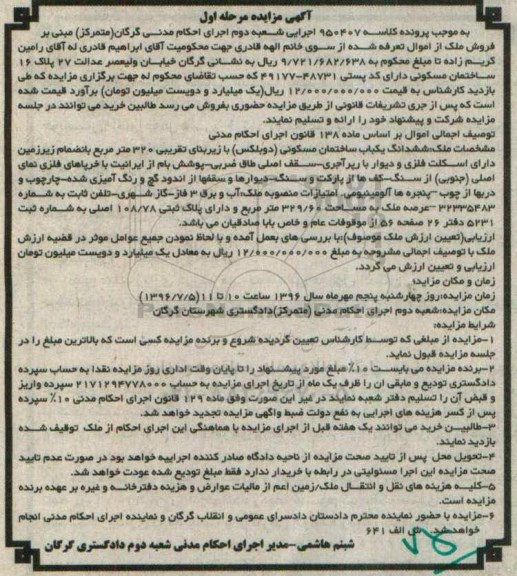 آگهی مزایده مرحله اول
به موجب پرونده کلاسه ۹۵۰۴۰۷ اجرایی شعبه دوم اجرای احکام مدنی گرگان(متمرکز) مبنی بر
فروش ملک از اموال تعرفه شده از سوی خانم الهه قادری جهت محکومیت آقای ابراهیم قادری له آقای رامین
کریم زاده تا مبلغ محکوم به ۹/۷۲۱/۶۸۲/۶۳۸ ریال به نشانی گرگان خیابان ولیعصر عدالت ۲۷ پلاک ۱۶
ساختمان مسکونی دارای کد پستی ۴۸۷۳۱-۴۹۱۷۷ که حسب تقاضای محکوم له جهت برگزاری مزایده که طی
بازدید کارشناس به قیمت ۱۲/۰۰۰/۰۰۰/۰۰۰ ریال(یک میلیارد و دویست میلیون تومان) برآورد قیمت شده
است که پس از جری تشریفات قانونی از طریق مزایده حضوری بفروش می رسد طالبین خرید می توانند در جلسه
مزایده شرکت و پیشنهاد خود را ارائه و تسلیم نمایند.
توصیف اجمالی اموال بر اساس ماده ۱۳۸ قانون اجرای احکام مدنی
مشخصات ملک:ششدانگ یکباب ساختمان مسکونی (دوبلکس) با زیربنای تقریبی ۳۲۰ متر مربع بانضمام زیرزمین
دارای اسکلت فلزی و دیوار با زیرآجری-سقف اصلی طاق ضربی-پوشش بام از ایرانیت با خرپاهای فلزی نمای
اصلی (جنوبی) از سنگ-کف ها از پارکت و سنگ-دیوارها و سقفها از اندود گچ و رنگ آمیزی شده-چارچوب و
دربها از چوب -پنجره ها آلومینیومی. امتیازات منصوبه ملک:آب و برق ۳ فاز-گاز شهری-تلفن ثابت به شماره
۳۲۳۳۵۴۸۳ -عرصه ملک به مساحت ۳۲۹/۶۰ متر مربع و دارای پلاک ثبتی ۱۰۸/۷۸ اصلی به شماره ثبت
۵۲۳۱ دفتر ۲۶ صفحه ۵۶ از موقوفات عام و خاص بابا صادقیان می باشد.
ارزیابی(تعیین ارزش ملک موصوف):با بررسی های بعمل آمده و با لحاظ نمودن جمیع عوامل موثر در قضیه ارزش
ملک با توصیف اجمالی مشروحه به مبلغ ۱۲/۰۰۰/۰۰۰/۰۰۰ ریال به معادل یک میلیارد و دویست میلیون تومان
ارزیابی و تعیین ارزش می گردد.
زمان و مکان مزاید:
زمان مزایده:روز چهارشنبه پنجم مهرماه سال ۱۳۹۶ ساعت ۱۰ تا ۱۱(۱۳۹۶/۷/۵)
مکان مزایده:شعبه دوم اجرای احکام مدنی (متمرکز)دادگستری شهرستان گرگان
شرایط مزایده:
۱-مزایده از مبلغی که توسط کارشناس تعیین گردیده شروع و برنده مزایده کسی است که بالاترین مبلغ را در
جلسه مزایده قبول نماید.
۲-برنده مزایده می بایست ۱۰٪ مبلغ مورد پیشنهاد را تا پایان وقت اداری روز مزایده نقدا به حساب سپرده
دادگستری تودیع و مابقی ان را ظرف یک ماه از تاریخ اجرای مزایده به حساب ۲۱۷۱۲۹۴۷۷۸۰۰۰ سپرده واریز
و قبض آن را تسلیم دفتر شعبه نمایند در غیر این صورت وفق ماده ۱۲۹ قانون اجرای احکام مدنی ۱۰٪ سپرده
پس از کسر هزینه های اجرایی به نفع دولت ضبط واگهی مزایده تجدید خواهد شد.
۳-طالبین خرید می توانند یک هفته قبل از اجرای مزایده با هماهنگی این اجرای احکام از ملک توقیف شده
بازدید نمایند.
۴-تحویل محل پس از تایید صحت مزایده از ناحیه دادگاه صادر کننده اجراییه خواهد بود در صورت عدم تایید
صحت مزایده این اجرا مسئولیتی در رابطه با خریدار ندارد فقط مبلغ تودیع شده عودت خواهد شد.
۵-کلیه هزینه های نقل و انتقال ملک/زمین اعم از مالیات عوارض و هزینه دفترخانه و غیره بر عهده برنده
مزایده است.
۶-مزایده با حضور نماینده محترم دادستان دادسرای عمومی و انقلاب گرگان و نماینده اجرای احکام مدنی انجام
خواهد شد. ش الف ۶۴۱
شبنم هاشمی-مدیر اجرای احکام مدنی شعبه دوم دادگستری گرگان